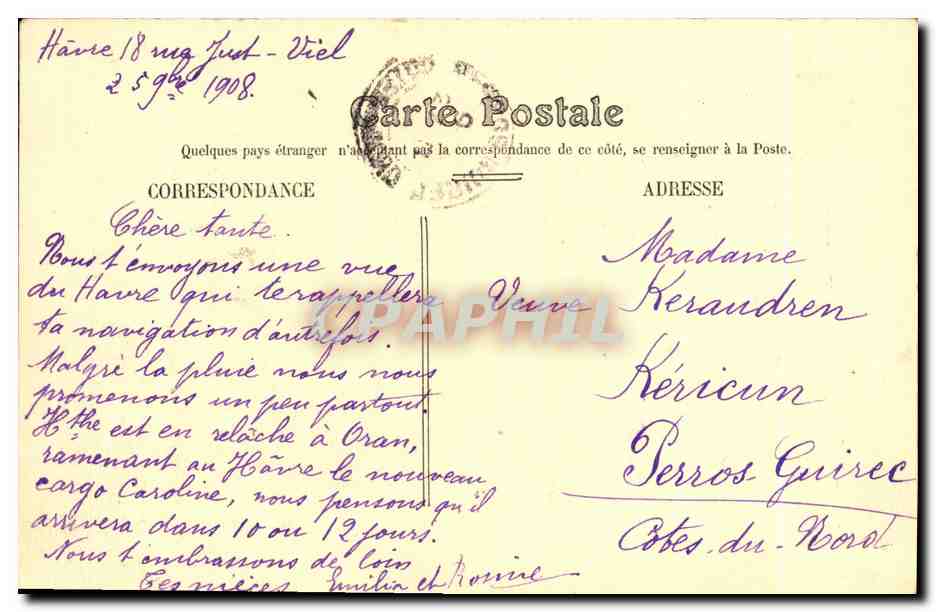 Hâvre 18 rue Just-Viel
25 9bre 1908.
Carte Postale
Quelques pays étranger n'acceptant pas la correspondance de ce côté, se renseigner à la Poste.
CORRESPONDANCE
Chère tante.
Nous t'envoyons une vue
du Havre qui te rappellera
ta navigation d'autrefois.
Malgré la pluie nous nous
promenons un peu partout.
Hthe est en relâche à Oran,
ramenant au Hâvre le nouveau
cargo Caroline, nous pensons qu'il
arrivera dans 10 ou 12 jours.
Nous t'embrassons de loin
Tes nièces Emilia et
ADRESSE
Madame
Veuve Keraudren
Kéricun
Perros-Guirec
Côtes-du-Nord
CPAPHIL